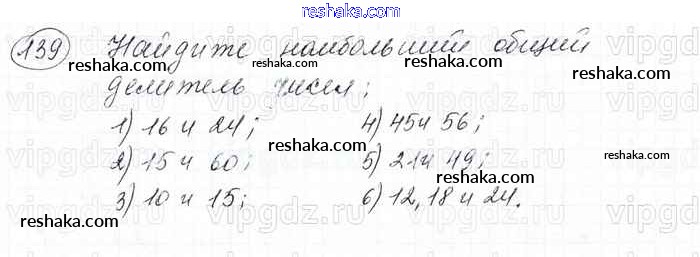 reshaka.com
139 Найдите наибольший общий
reshaka.com reshaka.com reshaka.com
делитель чисел:
1) 16 и 24; 4) 45 и 56;
reshaka.com reshaka.com
2) 15 и 60; 5) 21 и 49;
reshaka.com reshaka.com
3) 10 и 15; 6) 12, 18 и 24.
reshaka.com reshaka.com
vipgdz.ru vipgdz.ru vipgdz.ru
reshaka.com